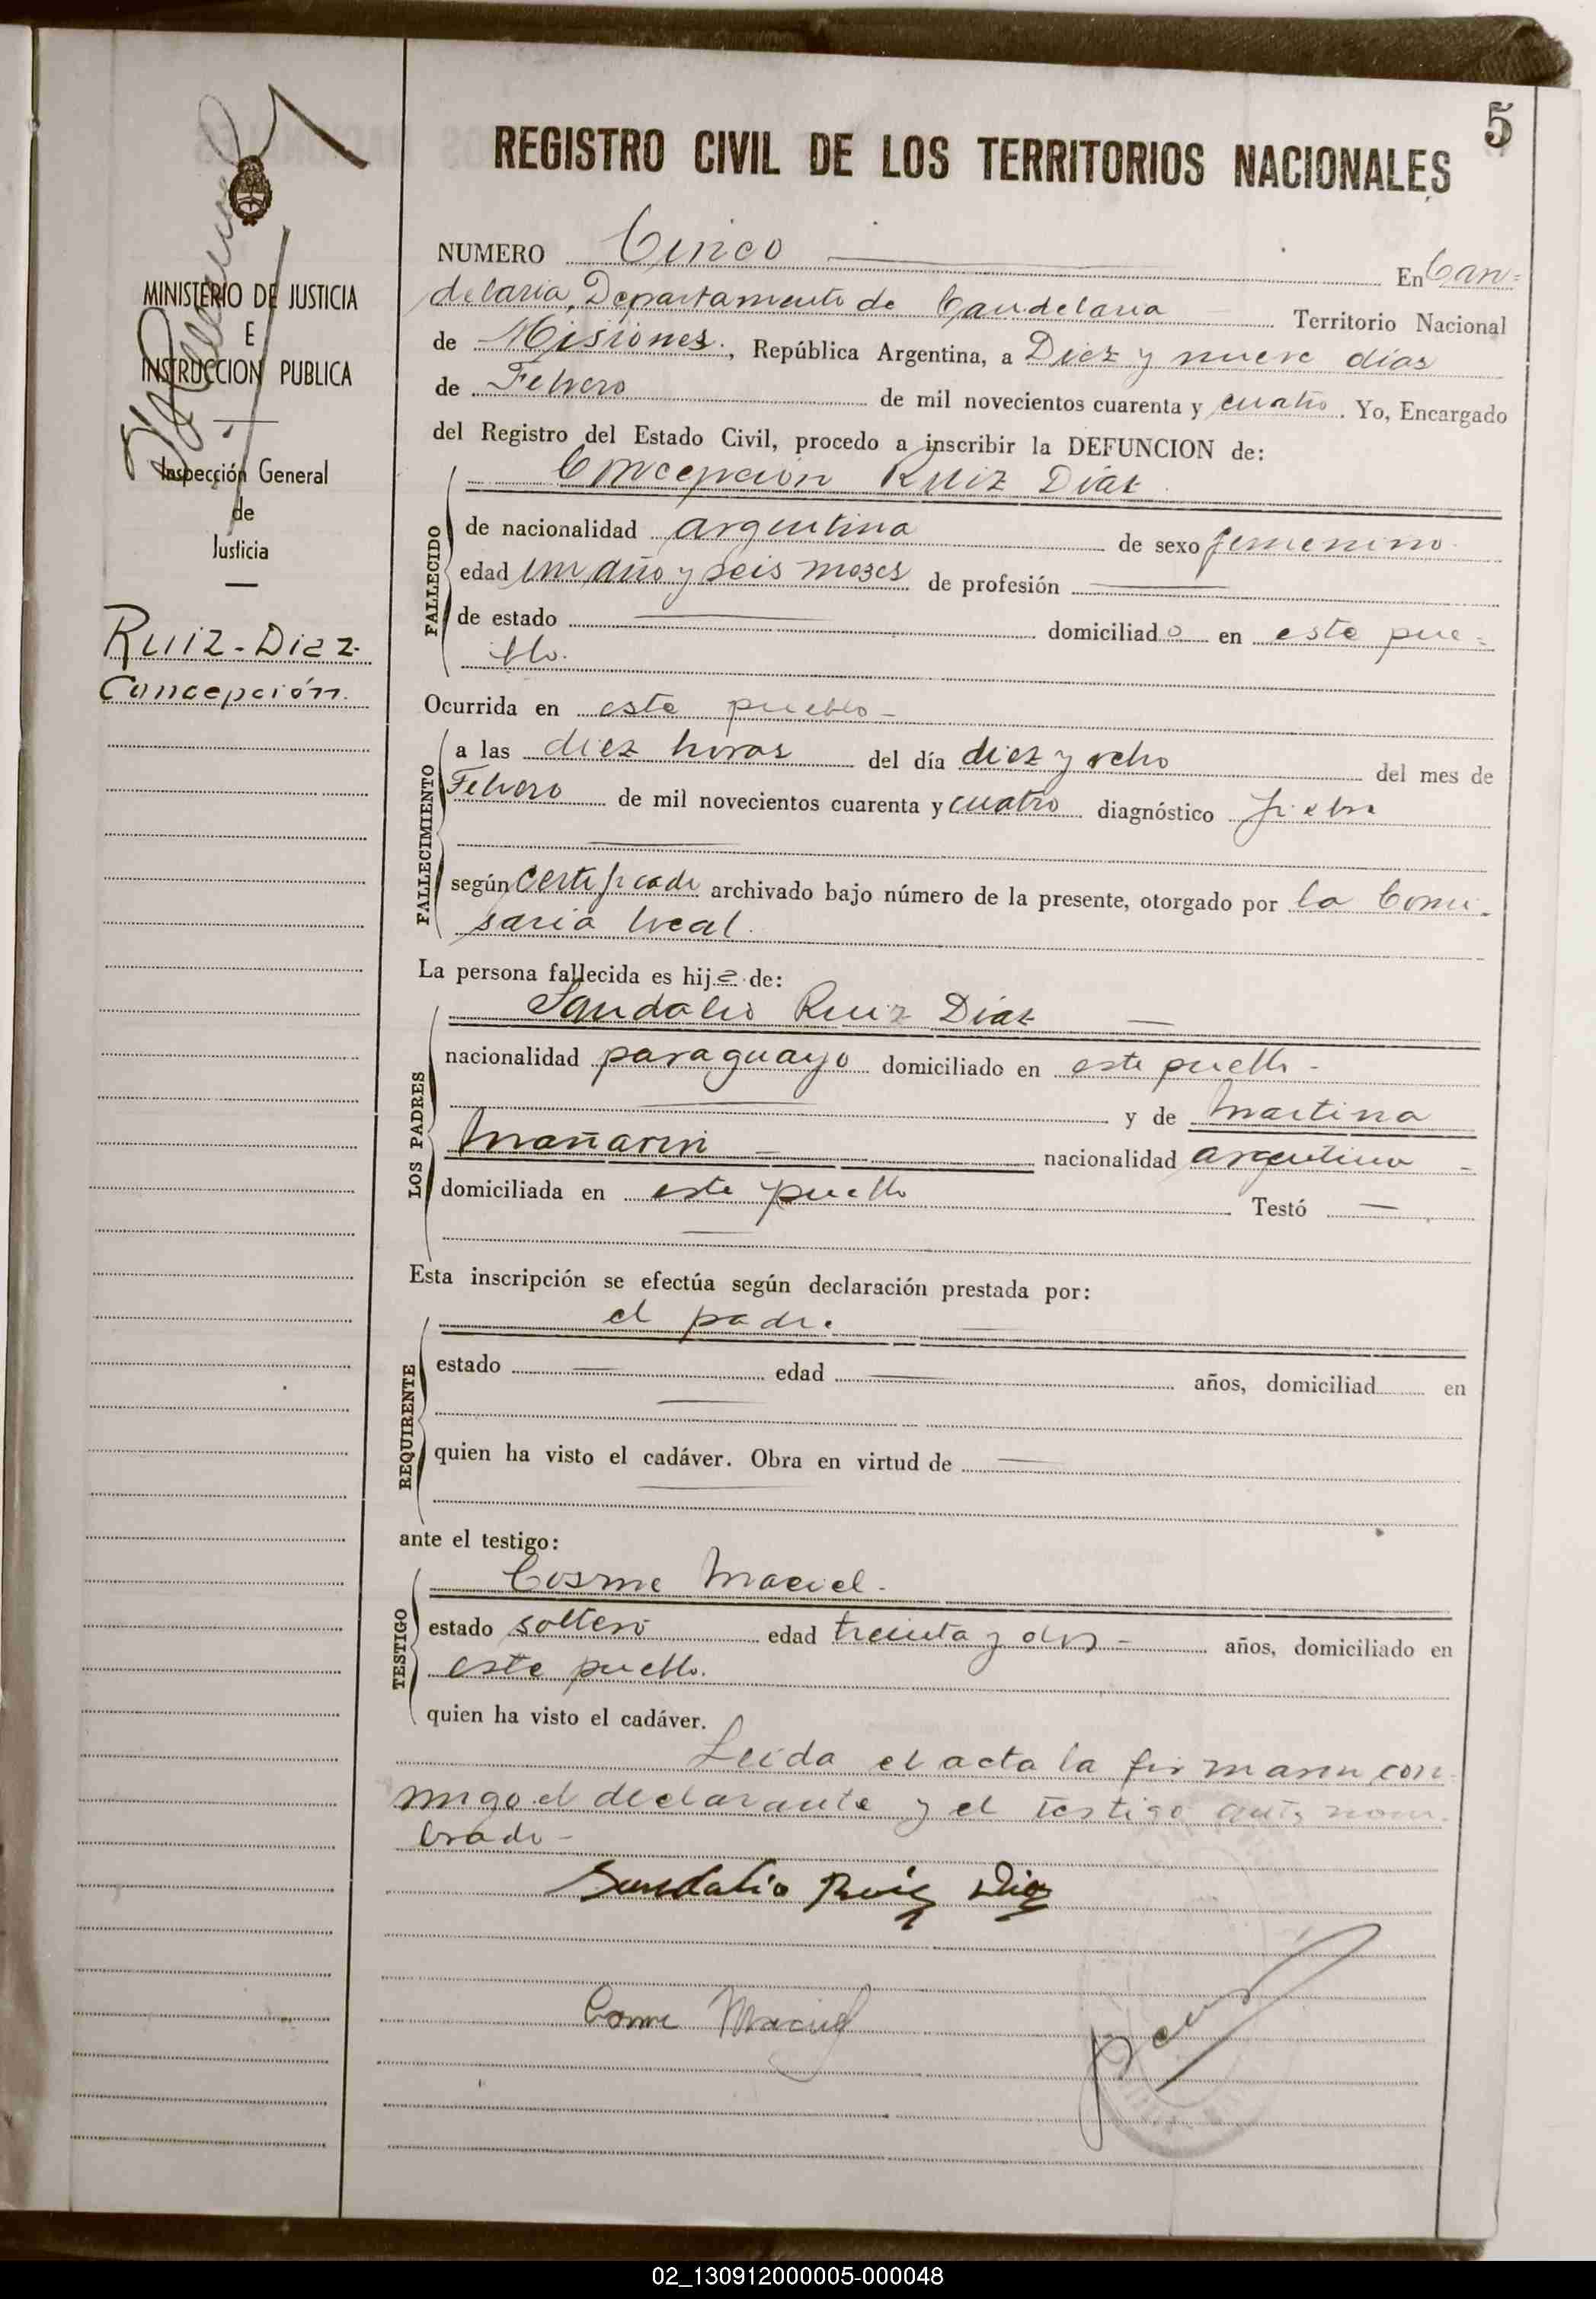 5
REGISTRO CIVIL DE LOS TERRITORIOS NACIONALES
MINISTERIO DE JUSTICIA
E
INSTRUCCION PUBLICA
Inspección General
de
Justicia
Ruiz-Diaz
Concepción.
NUMERO Cinco En Can=
delaria, Departamento de Candelaria Territorio Nacional
de Misiones, República Argentina, a Diez y nueve días
de Febrero de mil novecientos cuarenta y cuatro. Yo, Encargado
del Registro del Estado Civil, procedo a inscribir la DEFUNCION de:
Concepción Ruiz Diaz
FALLECIDO
de nacionalidad argentina de sexo femenino
edad un año y seis mezes de profesión
de estado domiciliado en este pue=
blo.
Ocurrida en este pueblo
FALLECIMIENTO
a las diez horas del día diez y ocho del mes de
Febrero de mil novecientos cuarenta y cuatro diagnóstico fiebre
según certificado archivado bajo número de la presente, otorgado por la Comi-
saria local.
La persona fallecida es hija de:
LOS PADRES
Sandalio Ruiz Diaz
nacionalidad paraguayo domiciliado en este pueblo
y de Martina
Mañarin nacionalidad argentina
domiciliada en este pueblo Testó
Esta inscripción se efectúa según declaración prestada por:
el padre
REQUIRENTE
estado edad años, domiciliad en
quien ha visto el cadáver. Obra en virtud de
ante el testigo:
TESTIGO
Cosme Maciel.
estado soltero edad treinta y dos años, domiciliado en
este pueblo.
quien ha visto el cadáver.
Leida el acta la firmaron con
migo el declarante y el testigo ante nom-
brado
Sandalio Ruiz Diaz
Cosme Maciel
02_130912000005-000048